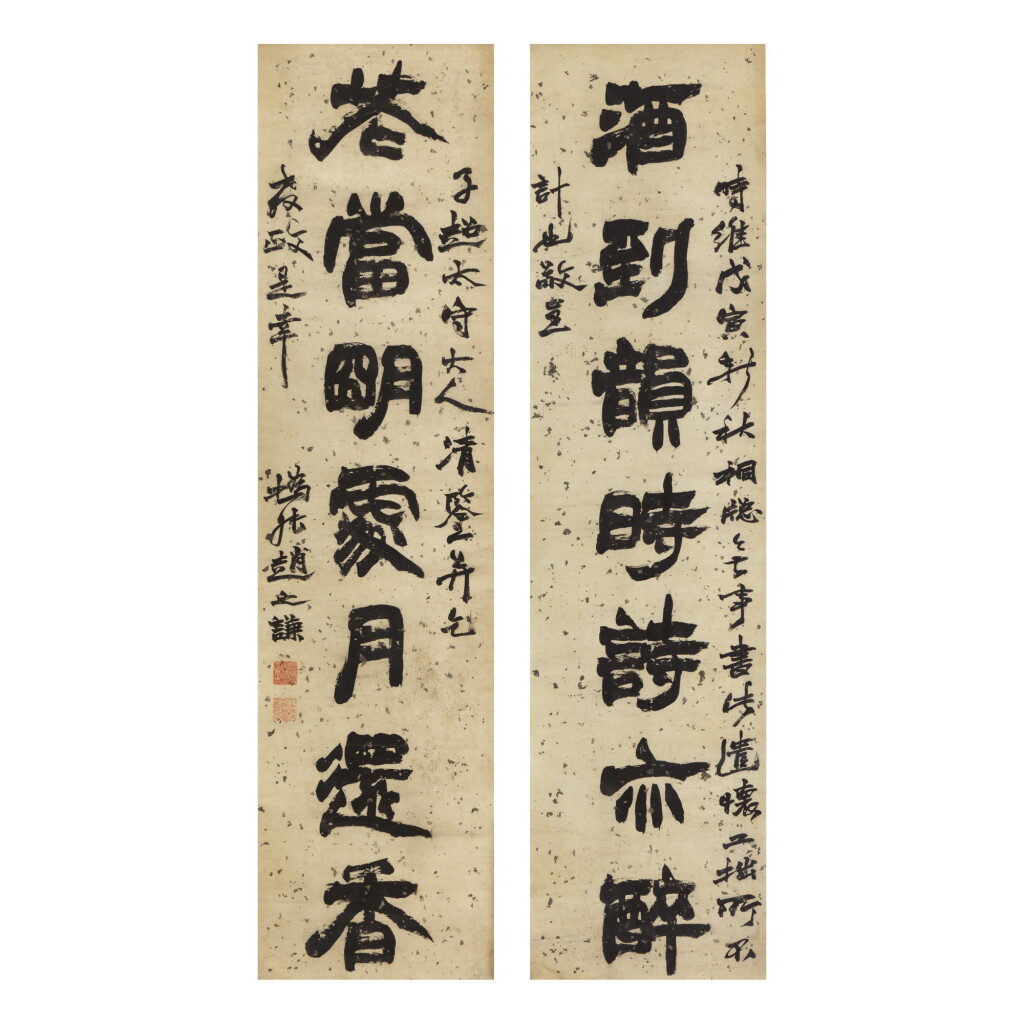 時維戊寅新秋桐牕無事書此遣懷工拙所不
酒到韻時詩亦醉
計也敬呈
子超太守大人清鑒并乞
花當朙處月還香
教政是幸
撝叔趙之謙